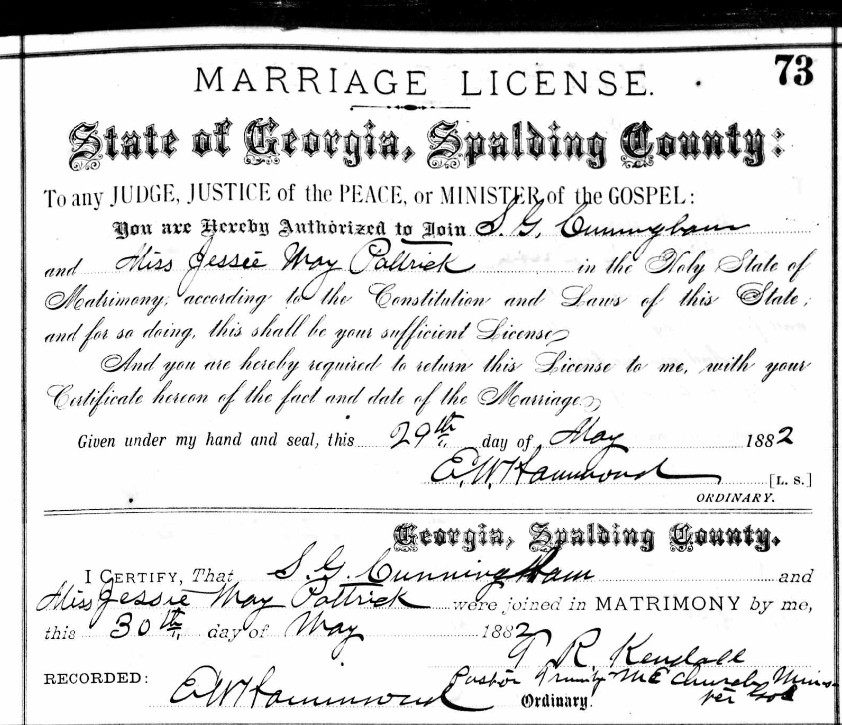 73
MARRIAGE LICENSE.
State of Georgia, Spalding County:
To any JUDGE, JUSTICE of the PEACE, or MINISTER of the GOSPEL:
You are Hereby Authorized to Join S. G. Cunningham
and Miss Jessie May Pattrick in the Holy State of
Matrimony, according to the Constitution and Laws of this State;
and for so doing, this shall be your sufficient License.
And you are hereby required to return this License to me, with your
Certificate hereon of the fact and date of the Marriage.
Given under my hand and seal, this 29th day of May 1882
E. W. Hammond [L. S.]
ORDINARY.
Georgia, Spalding County.
I CERTIFY, That S. G. Cunningham and
Miss Jessie May Pattrick were joined in MATRIMONY by me,
this 30th day of May 1882
T R Kendall
Pastor Trinity M E Church
RECORDED: E W Hammond Ordinary.